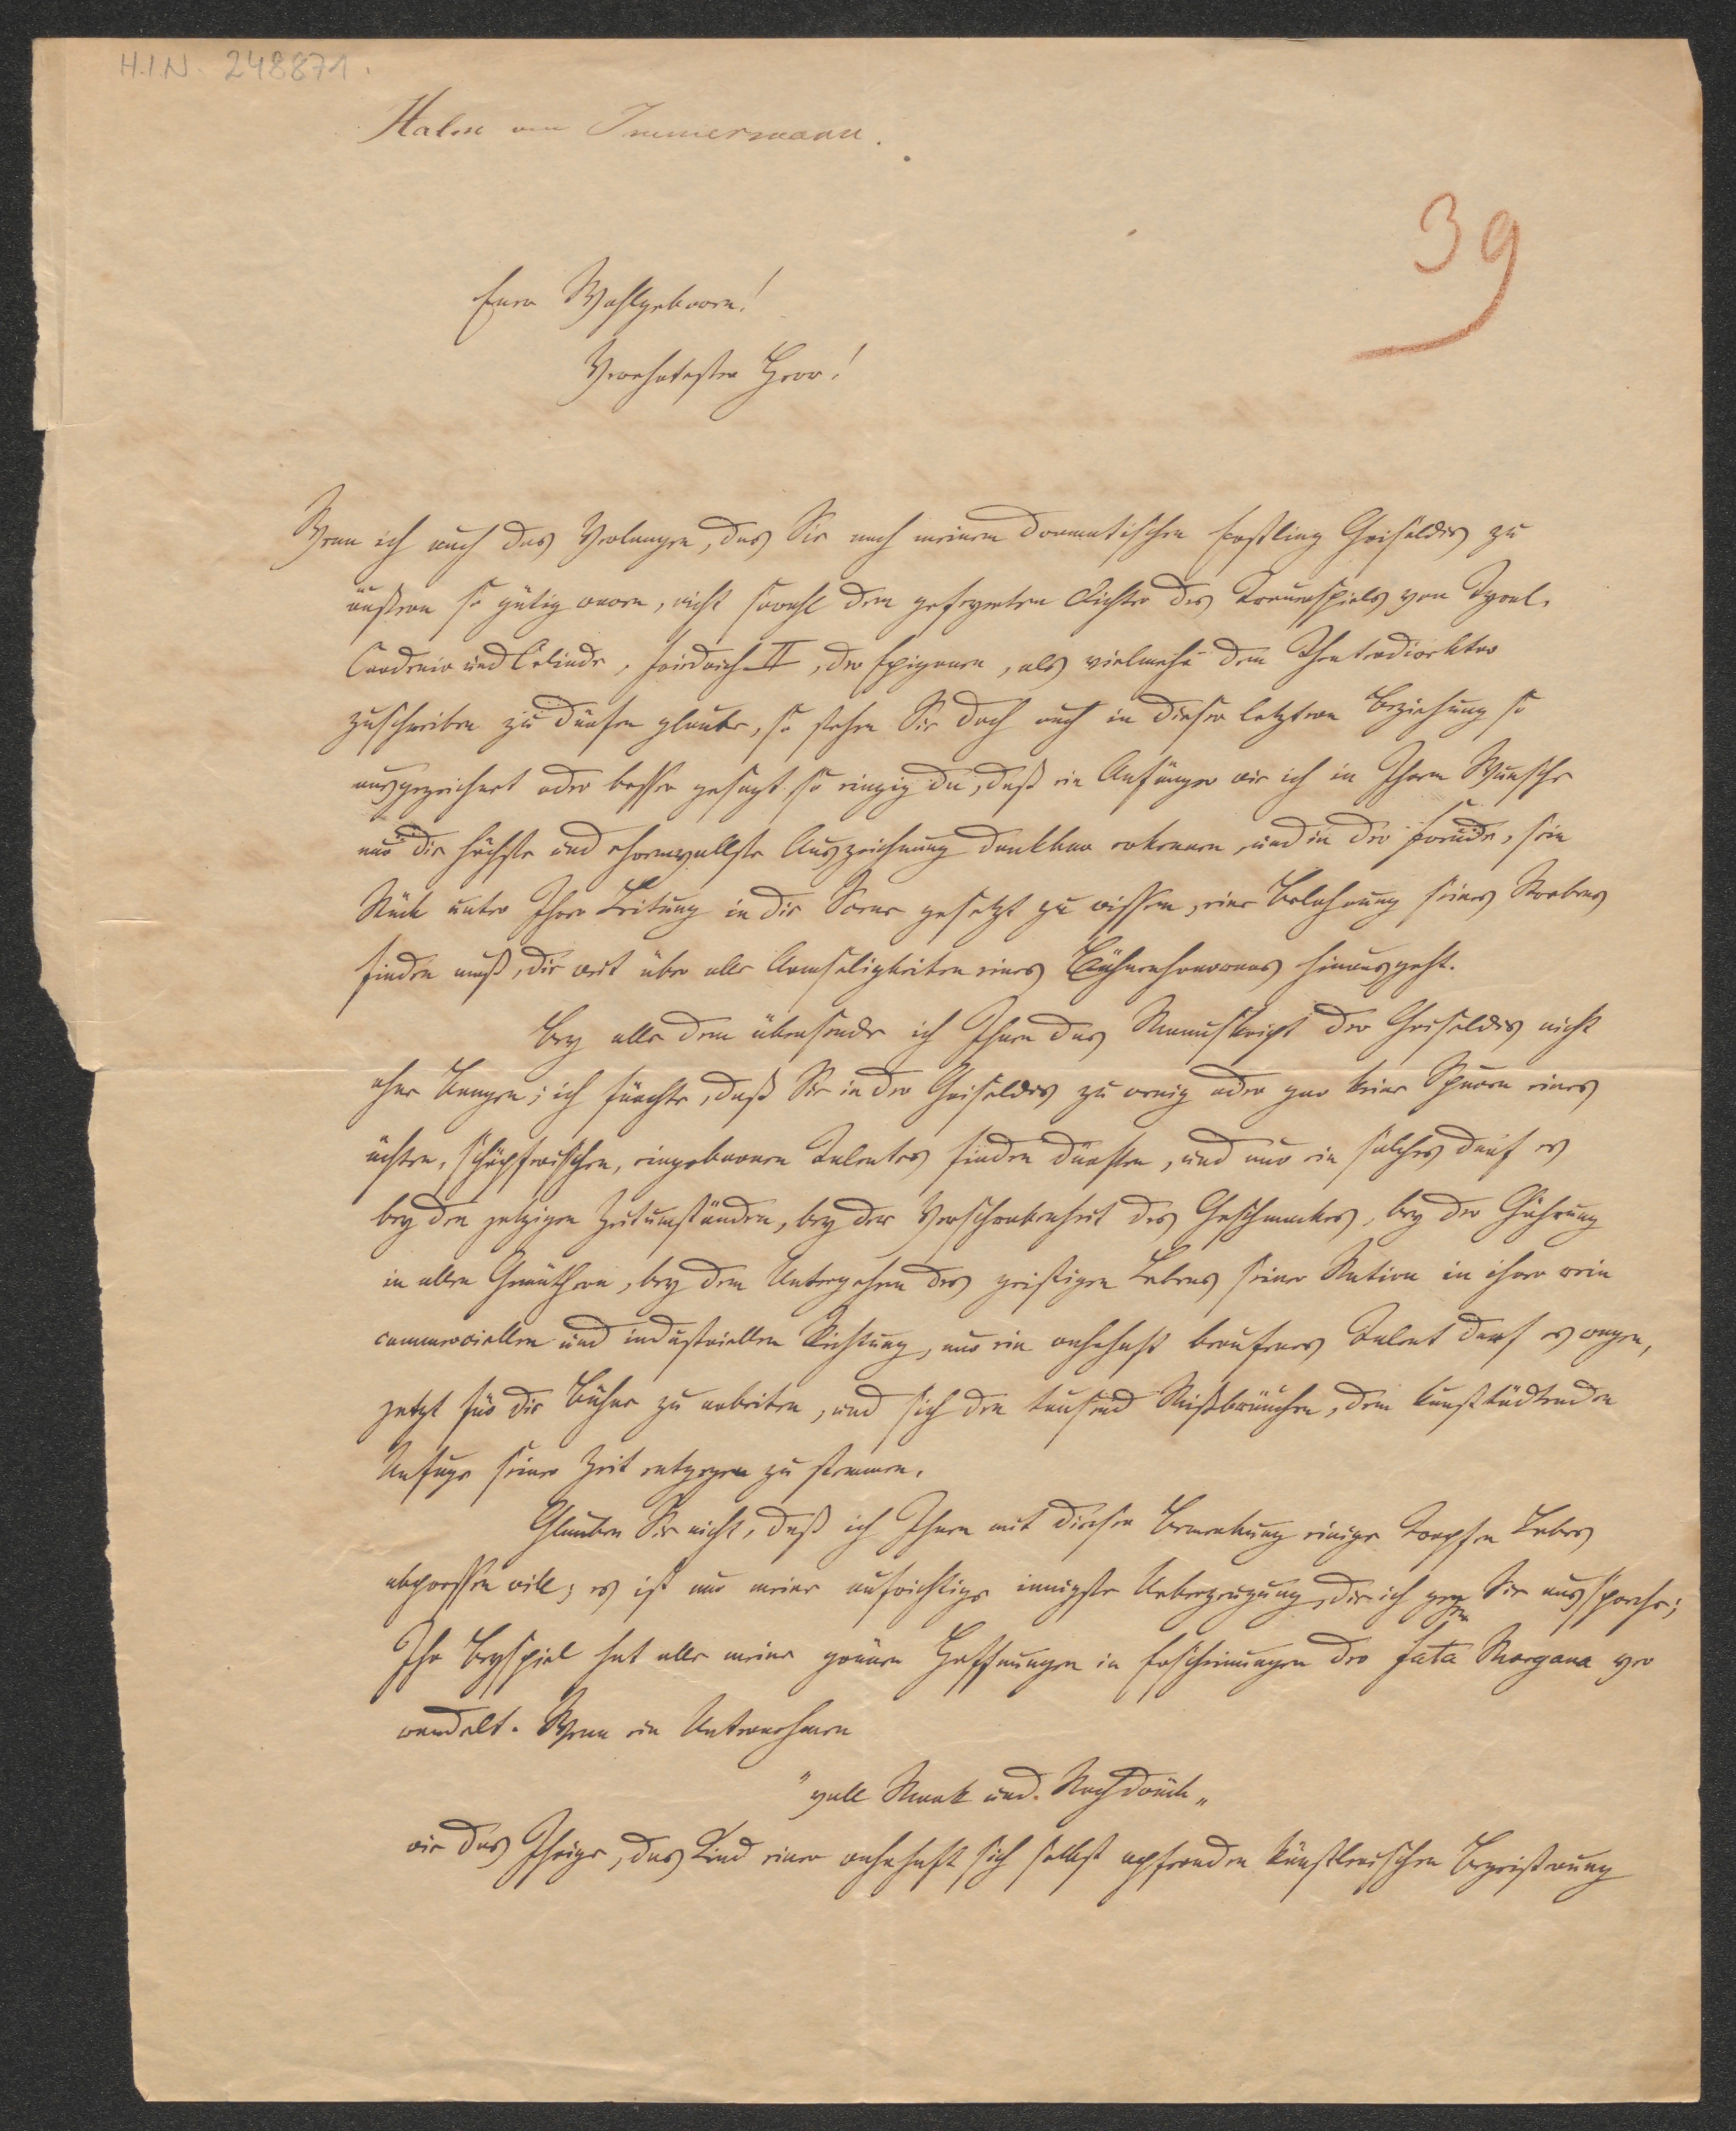 H.I.N. 248871.
Halm an Immermann.
39
Euer Wohlgeboren!
Verehrtester Herr!
Wenn ich auch das Verlangen, das Sie nach meinem dramatischen Erstling Griseldis zu
äußern so gütig waren, nicht sowohl dem gefeyerten Dichter des Trauerspiels von Tyrol,
Cardenio und Celinde, Friedrich II, der Epigonen, als vielmehr dem Theaterdirektor
zuschreiben zu dürfen glaube, so stehen Sie doch auch in dieser letztern Beziehung so
ausgezeichnet oder besser gesagt so einzig da, daß ein Anfänger wie ich in Ihrem Wunsche
nur die höchste und ehrenvollste Auszeichnung dankbar erkennen, und in der Freude, sein
Stück unter Ihrer Leitung in die Scene gesetzt zu wissen, eine Belohnung seines Strebens
finden muß, die weit über alle Armseligkeiten eines Bühnenhonorares hinausgeht.
Bey alle dem übersende ich Ihnen das Manuskript der Griseldis nicht
ohne Bangen; ich fürchte, daß Sie in der Griseldis zu wenig oder gar keine Spuren eines
ächten, schöpferischen, eingebornen Talentes finden dürften, und nur ein solches darf es
bey den jetzigen Zeitumständen, bey der Verschrobenheit des Geschmackes, bey der Gährung
in allen Gemüthern, bey dem Untergehen des geistigen Lebens seiner Nation in ihrer rein
commerciellen und industriellen Richtung, nur ein wahrhaft berufenes Talent darf es wagen,
jetzt für die Bühne zu arbeiten, und sich den tausend Mißbräuchen, dem kunsttödtenden
Unfuge seiner Zeit entgegen zu stemmen.
Glauben Sie nicht, daß ich Ihnen mit dieser Bemerkung einige Tropfen Lobes
abpressen will; es ist nur meine aufrichtige innigste Ueberzeugung, die ich gegen Sie ausspreche;
Ihr Beyspiel hat alle meine grünen Hoffnungen in Erscheinungen der fata Morgana ver
wandelt. Wenn ein Unternehmen
"voll Mark und Nachdruck"
wie das Ihrige, das Kind einer wahrhaft sich selbst opfernden künstlerischen Begeisterung